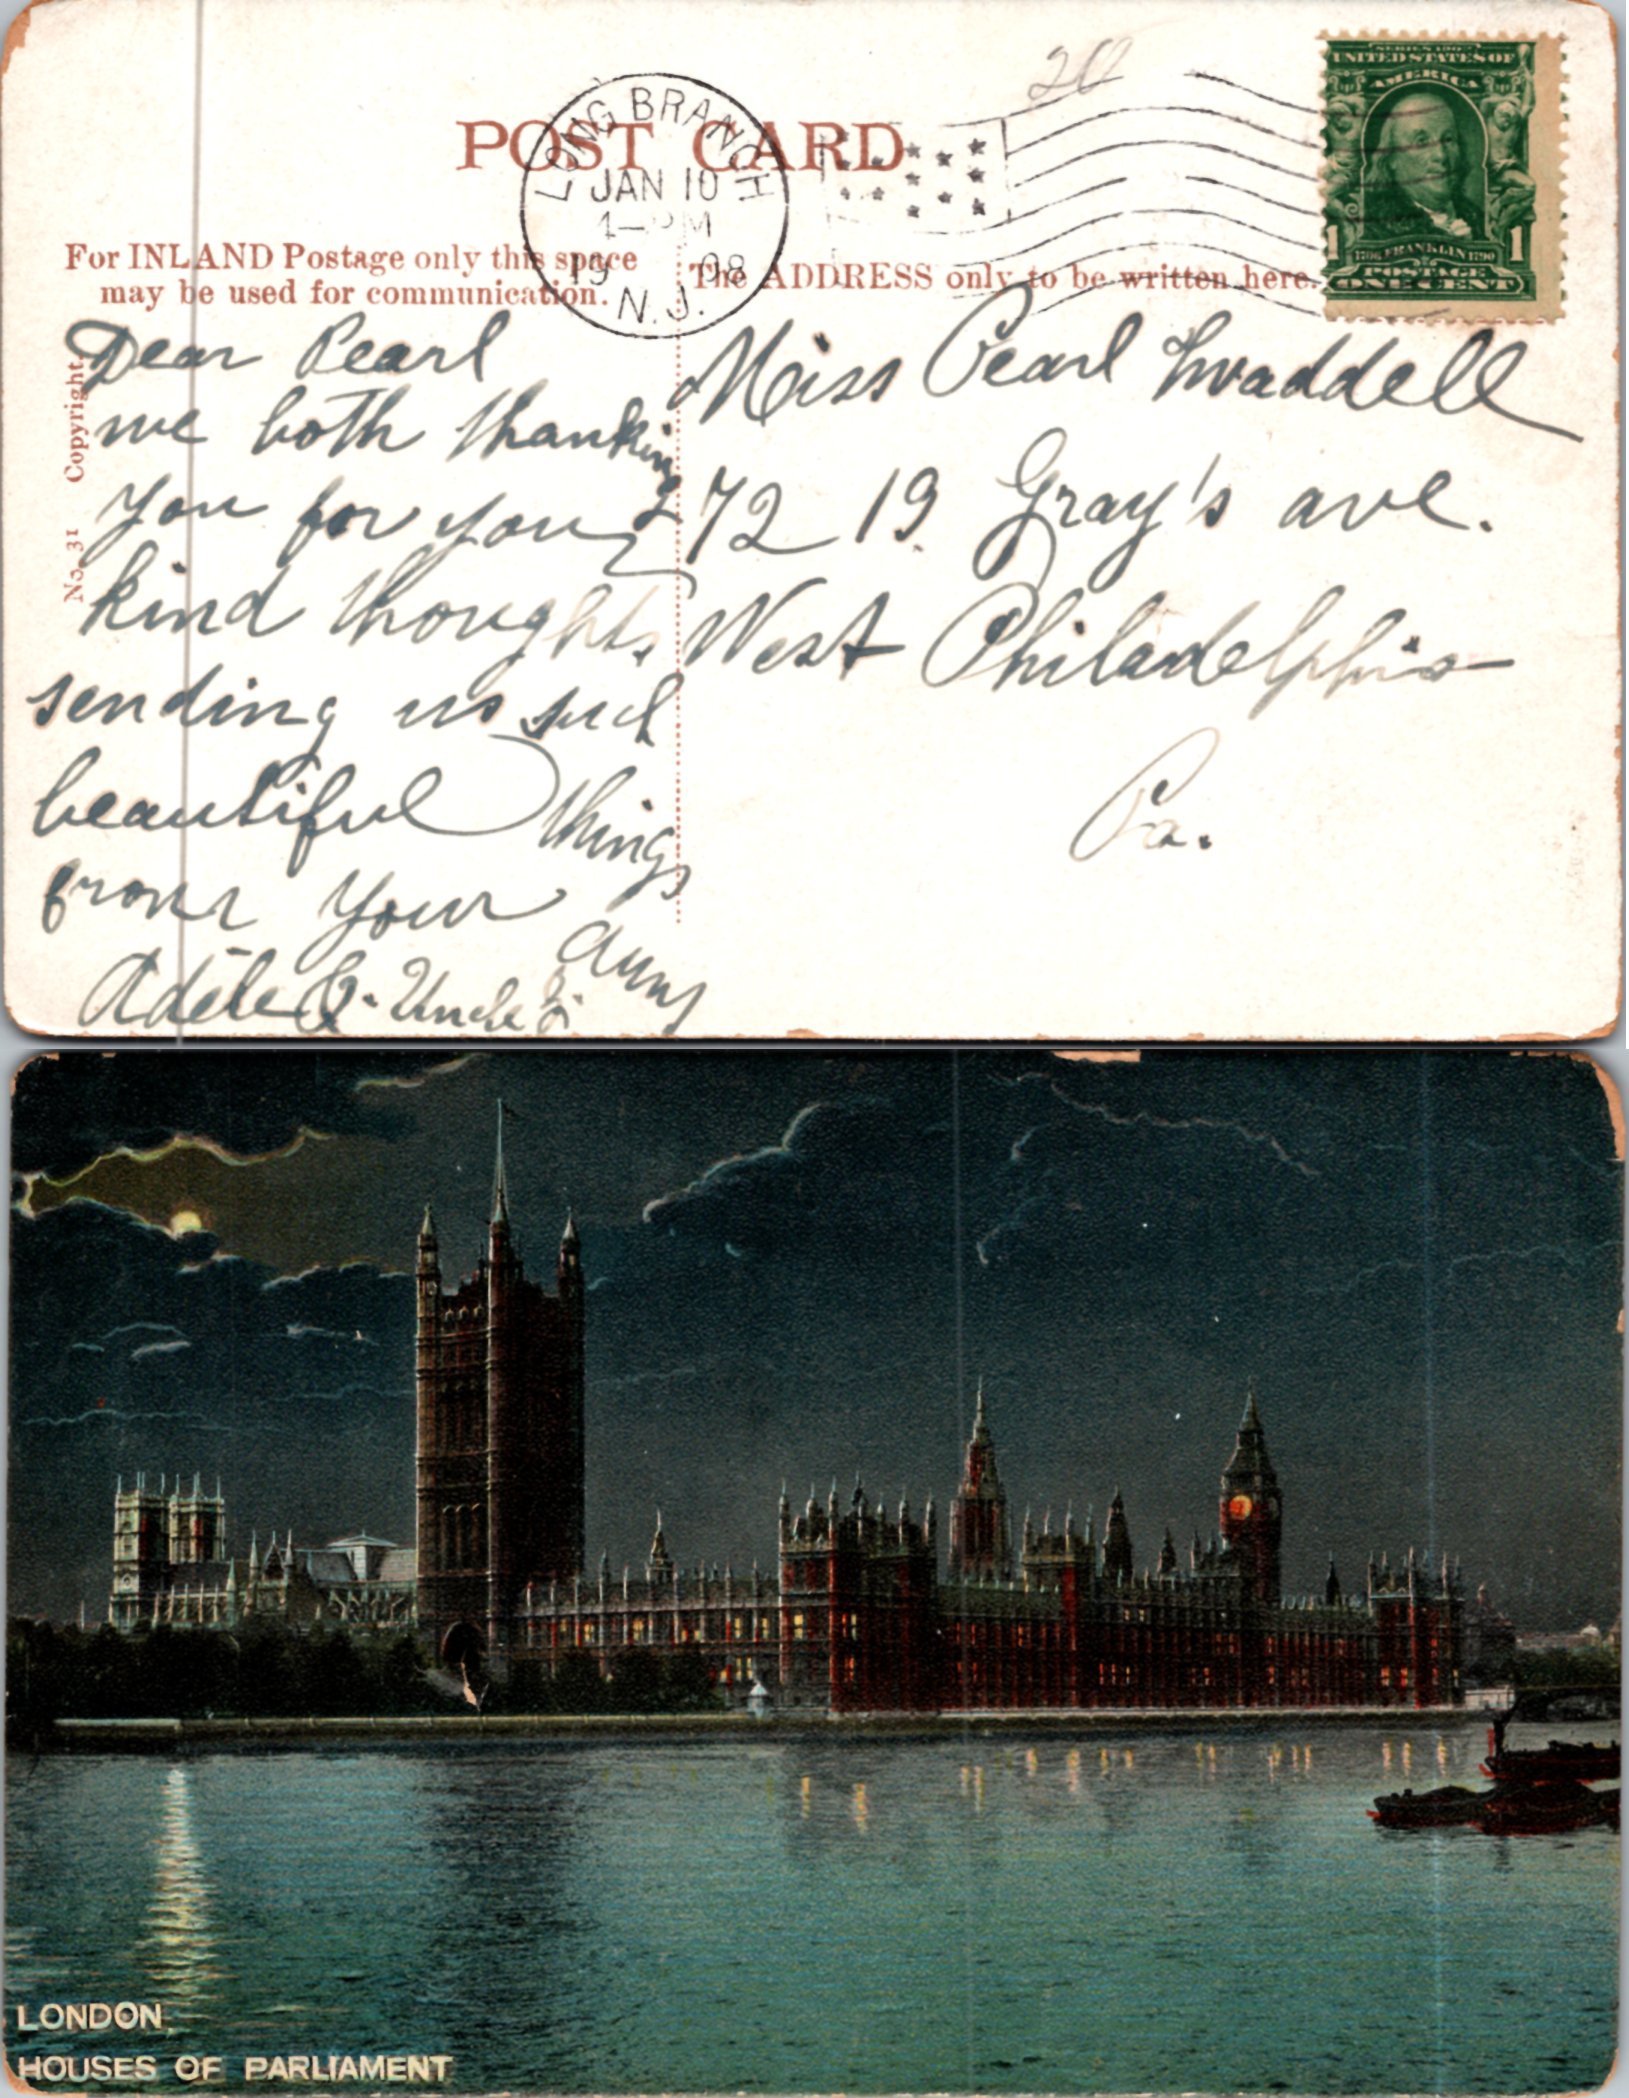 POST CARD
20
LONG BRANCH
JAN 10
1-PM
19 08
N.J.
SERIES 1902
UNITED STATES OF
AMERICA
1 1
1706 FRANKLIN 1790
POSTAGE
ONE CENT
For INLAND Postage only this space
may be used for communication.
The ADDRESS only to be written here.
No. 31 Copyright.
Dear Pearl
we both thanking
you for your
kind thoughts
sending us such
beautiful things
from your Aunt
Adéle & Uncle
Miss Pearl Twaddell
72 19 Gray's ave.
West Philadelphia
Pa.
LONDON.
HOUSES OF PARLIAMENT